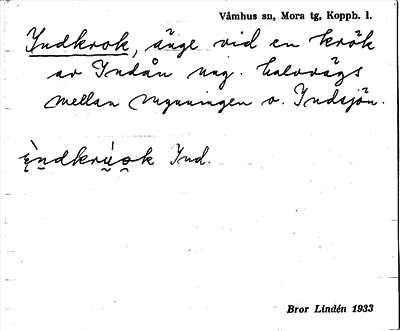 Våmhus sn, Mora tg, Koppb. l.
Indkrok, änge vid en krök
av Indån ung. halvvägs
mellan mynningen o. Indsjön.
Ind.
Bror Lindén 1933